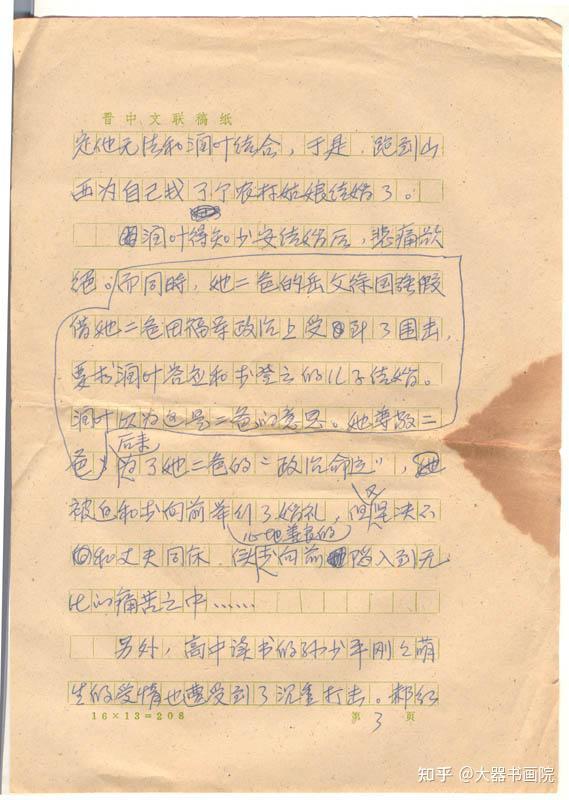 晋中文联稿纸
定他无法和润叶结合，于是，跑到山
西为自己找了个农村姑娘结婚了。
润叶得知少安结婚后，悲痛欲
绝。而同时，她二爸的岳父徐国强假
借她二爸田福军政治上受到了围击，
要求润叶答应和李登云的儿子结婚。
润叶以为这是二爸的意思。她尊敬二
后来
爸，为了她二爸的“政治命运”，她
被迫和李向前举行了婚礼，但又坚决不
心地善良的
和丈夫同床，使李向前陷入到无
比的痛苦之中……
另外，高中读书的孙少平刚刚萌
生的爱情也遭受到了沉重打击。郝红
16×13=208
第3页
知乎 @大器书画院